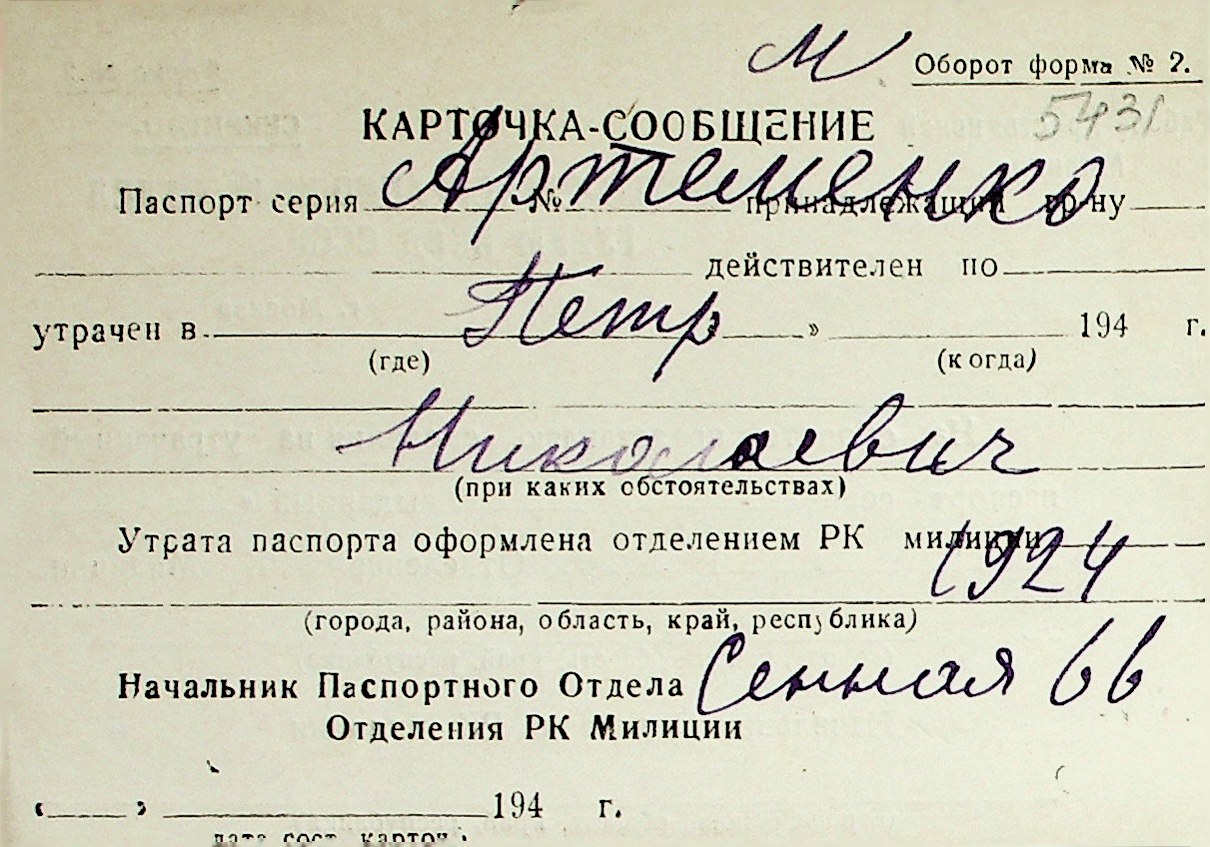 М Оборот форма № 2.
5431
КАРТОЧКА-СООБЩЕНИЕ
Артеменко
Паспорт серия № принадлежащий гр-ну
действителен по
Петр
утрачен в » 194 г.
(где) (когда)
Николаевич
(при каких обстоятельствах)
Утрата паспорта оформлена отделением РК милиции
1924
(города, района, область, край, республика)
Начальник Паспортного Отдела Сенная 66
Отделения РК Милиции
« » 194 г.
дата сост. карточ.